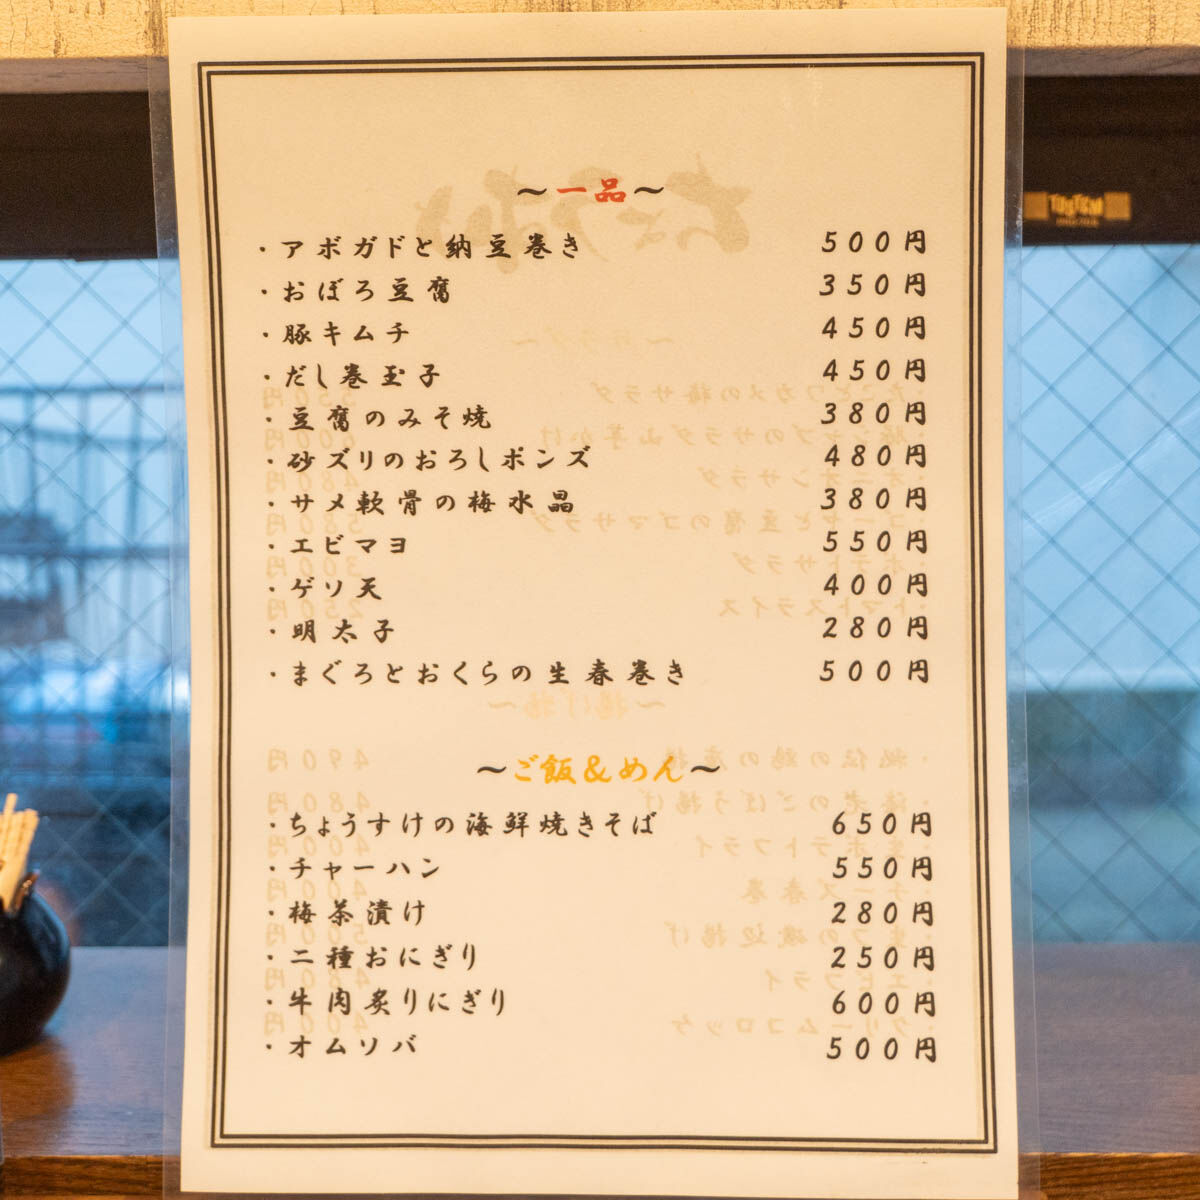 ～一品～
・アボガドと納豆巻き 500円
・おぼろ豆腐 350円
・豚キムチ 450円
・だし巻玉子 450円
・豆腐のみそ焼 380円
・砂ズリのおろしポンズ 480円
・サメ軟骨の梅水晶 380円
・エビマヨ 550円
・ゲソ天 400円
・明太子 280円
・まぐろとおくらの生春巻き 500円
～ご飯&めん～
・ちょうすけの海鮮焼きそば 650円
・チャーハン 550円
・梅茶漬け 280円
・二種おにぎり 250円
・牛肉炙りにぎり 600円
・オムソバ 500円